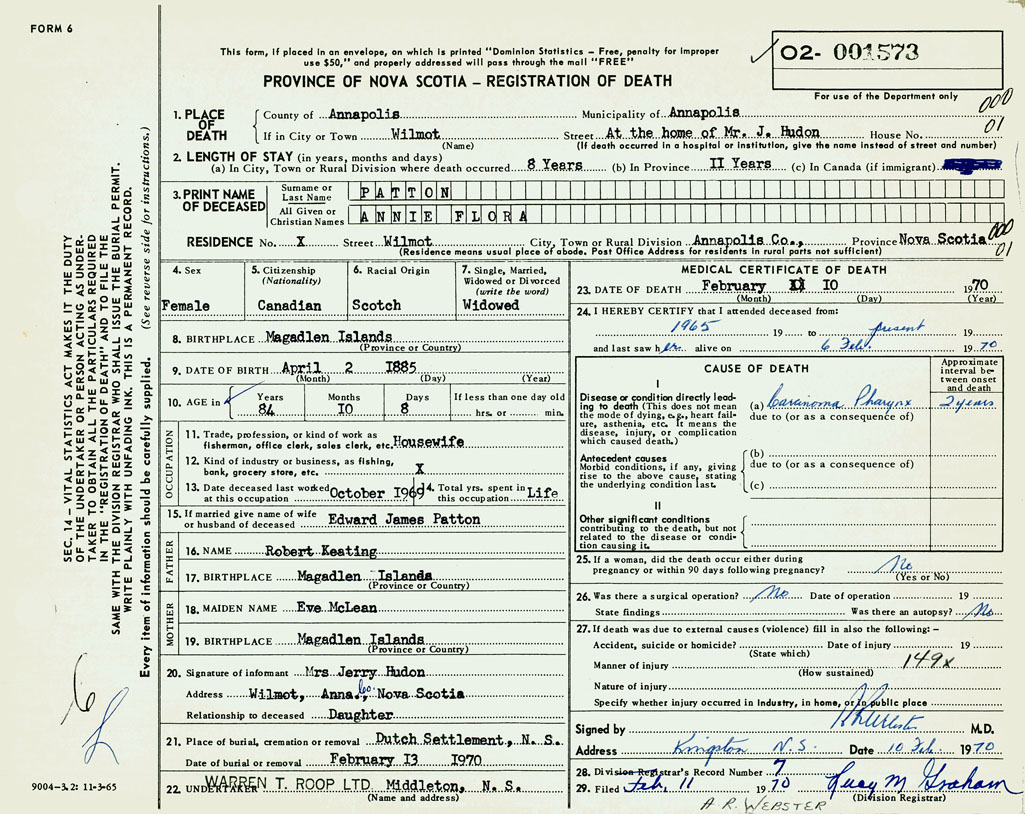 FORM 6
This form, if placed in an envelope, on which is printed "Dominion Statistics – Free, penalty for improper
use $50," and properly addressed will pass through the mail "FREE"
PROVINCE OF NOVA SCOTIA – REGISTRATION OF DEATH
02- 001573
For use of the Department only
000
01
1. PLACE OF DEATH
County of Annapolis Municipality of Annapolis
If in City or Town Wilmot Street At the home of Mr. J. Hudon House No.
(Name) (If death occurred in a hospital or institution, give the name instead of street and number)
2. LENGTH OF STAY (in years, months and days)
(a) In City, Town or Rural Division where death occurred 8 Years (b) In Province II Years (c) In Canada (if immigrant)
3. PRINT NAME OF DECEASED
Surname or Last Name PATTON
All Given or Christian Names ANNIE FLORA
RESIDENCE No. X Street Wilmot City, Town or Rural Division Annapolis Co., Province Nova Scotia
(Residence means usual place of abode. Post Office Address for residents in rural parts not sufficient)
000
01
4. Sex
Female
5. Citizenship
(Nationality)
Canadian
6. Racial Origin
Scotch
7. Single, Married,
Widowed or Divorced
(write the word)
Widowed
8. BIRTHPLACE Magadlen Islands
(Province or Country)
9. DATE OF BIRTH April 2 I885
(Month) (Day) (Year)
10. AGE in
Years Months Days If less than one day old
84 IO 8 hrs. or min.
OCCUPATION
11. Trade, profession, or kind of work as
fisherman, office clerk, sales clerk, etc. Housewife
12. Kind of industry or business, as fishing,
bank, grocery store, etc. X
13. Date deceased last worked
at this occupation October I969
14. Total yrs. spent in
this occupation Life
15. If married give name of wife
or husband of deceased Edward James Patton
FATHER
16. NAME Robert Keating
17. BIRTHPLACE Magadlen Islands
(Province or Country)
MOTHER
18. MAIDEN NAME Eve McLean
19. BIRTHPLACE Magadlen Islands
(Province or Country)
20. Signature of informant Mrs Jerry Hudon
Address Wilmot, Anna. Co. Nova Scotia
Relationship to deceased Daughter
21. Place of burial, cremation or removal Dutch Settlement, N. S.
Date of burial or removal February I3 I970
22. UNDERTAKER WARREN T. ROOP LTD Middleton, N. S.
(Name and address)
MEDICAL CERTIFICATE OF DEATH
23. DATE OF DEATH February IO 1970
(Month) (Day) (Year)
24. I HEREBY CERTIFY that I attended deceased from:
1965 19 to present 19
and last saw her alive on 6 Feb. 1970
CAUSE OF DEATH
Approximate
interval be-
tween onset
and death
I
Disease or condition directly lead-
ing to death (This does not mean
the mode of dying, e.g., heart fail-
ure, asthenia, etc. It means the
disease, injury, or complication
which caused death.)
(a) Carcinoma Pharynx 2 years
due to (or as a consequence of)
Antecedent causes
Morbid conditions, if any, giving
rise to the above cause, stating
the underlying condition last.
(b)
due to (or as a consequence of)
(c)
II
Other significant conditions
contributing to the death, but not
related to the disease or condi-
tion causing it.
25. If a woman, did the death occur either during
pregnancy or within 90 days following pregnancy? No
(Yes or No)
26. Was there a surgical operation? No Date of operation 19
State findings Was there an autopsy? No
27. If death was due to external causes (violence) fill in also the following: –
Accident, suicide or homicide? Date of injury 19
(State which)
Manner of injury 149x
(How sustained)
Nature of injury
Specify whether injury occurred in Industry, in home, or in public place
Signed by M.D.
Address Kingston N.S. Date 10 Feb. 1970
28. Division Registrar's Record Number 7
29. Filed Feb, 11 1970 Lucy M Graham
(Division Registrar)
A R. WEBSTER
SEC. 14 – VITAL STATISTICS ACT MAKES IT THE DUTY
OF THE UNDERTAKER OR PERSON ACTING AS UNDER-
TAKER TO OBTAIN ALL THE PARTICULARS REQUIRED
IN THE "REGISTRATION OF DEATH" AND TO FILE THE
SAME WITH THE DIVISION REGISTRAR WHO SHALL ISSUE THE BURIAL PERMIT.
WRITE PLAINLY WITH UNFADING INK. THIS IS A PERMANENT RECORD.
Every item of information should be carefully supplied. (See reverse side for instructions.)
6
9004-3.2: 11-3-65